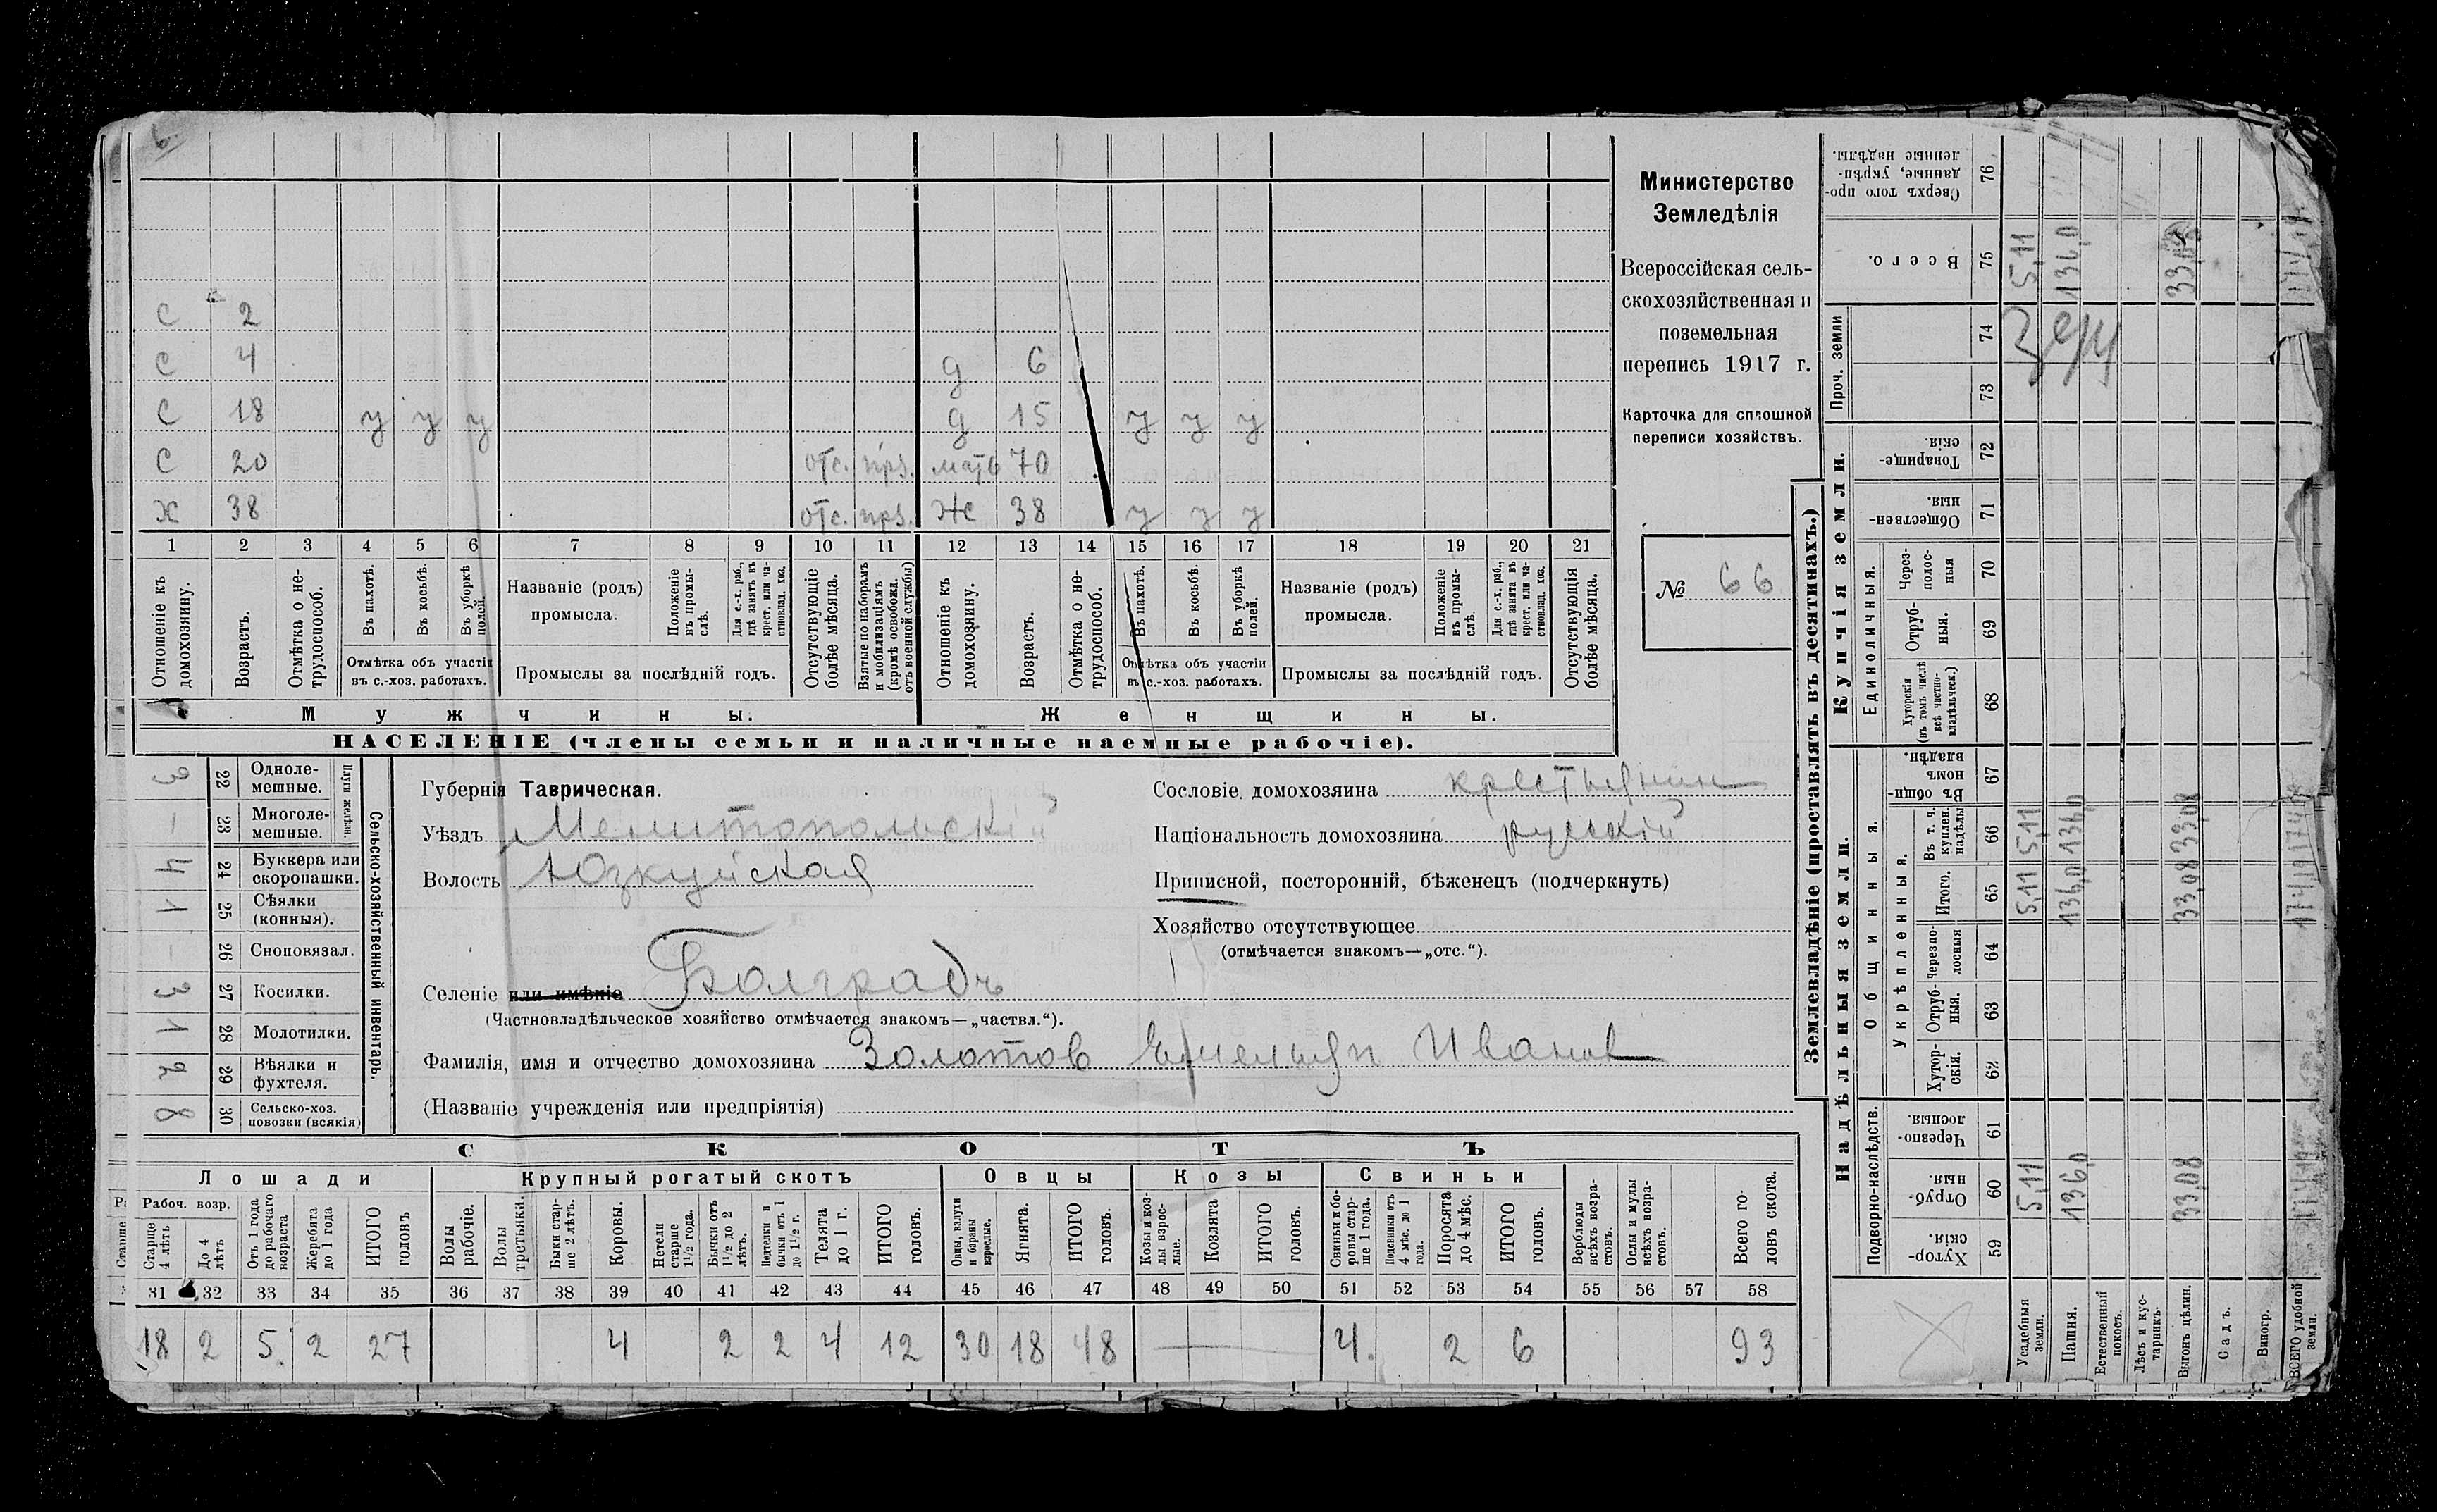 6
С 2
С 4 д 6
С 18 у у у д 15 у у у
С 20 отс. прз. мать 70
Х 38 отс. прз. Ж 38 у у у
1 2 3 4 5 6 7 8 9 10 11 12 13 14 15 16 17 18 19 20 21
Отношеніе къ домохозяину.
Возрастъ.
Отмѣтка о нетрудоспособ.
Въ пахотѣ.
Въ косьбѣ.
Въ уборкѣ полей.
Отмѣтка объ участіи
въ с.-хоз. работахъ.
Названіе (родъ)
промысла.
Положеніе въ промыслѣ.
Для с.-х. раб., гдѣ занятъ въ крест. или частновлад. хоз.
Промыслы за послѣдній годъ.
Отсутствующіе болѣе мѣсяца.
Взятые по наборамъ и мобилизаціямъ (кромѣ освобожд. отъ военной службы)
Отношеніе къ домохозяину.
Возрастъ.
Отмѣтка о нетрудоспособ.
Въ пахотѣ.
Въ косьбѣ.
Въ уборкѣ полей.
Отмѣтка объ участіи
въ с.-хоз. работахъ.
Названіе (родъ)
промысла.
Положеніе въ промыслѣ.
Для с.-х. раб., гдѣ занята въ крест. или частновлад. хоз.
Промыслы за послѣдній годъ.
Отсутствующія болѣе мѣсяца.
Мужчины.
Женщины.
НАСЕЛЕНІЕ (члены семьи и наличные наемные рабочіе).
Министерство
Земледѣлія
Всероссійская сель-
скохозяйственная и
поземельная
перепись 1917 г.
Карточка для сплошной
переписи хозяйствъ.
№ 66
Сельско-хозяйственный инвентарь.
Плуги желѣзн.
3 22 Одноле-
мешные.
— 23 Многоле-
мешные.
4 24 Буккера или
скоропашки.
1 25 Сѣялки
(конныя).
— 26 Сноповязал.
3 27 Косилки.
1 28 Молотилки.
2 29 Вѣялки и
фухтеля.
8 30 Сельско-хоз.
повозки (всякія)
Губернія Таврическая.
Уѣздъ Мелитопольскій
Волость Юзкуйская
Селеніе или имѣніе Болградъ
(Частновладѣльческое хозяйство отмѣчается знакомъ—„частвл.“).
Фамилія, имя и отчество домохозяина Золотов Емельян Иванов
(Названіе учрежденія или предпріятія)
Сословіе домохозяина крестьянин
Національность домохозяина русскій
Приписной, посторонній, бѣженецъ (подчеркнуть)
Хозяйство отсутствующее
(отмѣчается знакомъ—„отс.“).
СКОТЪ
Лошади
Крупный рогатый скотъ
Овцы
Козы
Свиньи
Рабоч. возр.
Старше 4 лѣтъ
До 4 лѣтъ
Отъ 1 года до рабочаго возраста
Жеребята до 1 года
ИТОГО головъ
Волы рабочіе.
Волы третьяки.
Быки старше 2 лѣтъ.
Коровы.
Нетели старше 1½ года.
Бычки отъ 1½ до 2 лѣтъ.
Подтелки и бычки отъ 1 до 1½ г.
Телята до 1 г.
ИТОГО головъ.
Овцы, валухи и бараны взрослые.
Ягнята.
ИТОГО головъ.
Козы и козлы взрослые.
Козлята
ИТОГО головъ.
Свиньи и боровы старше 1 года.
Подсвинки отъ 4 мѣс. до 1 года.
Поросята до 4 мѣс.
ИТОГО головъ.
Верблюды всѣхъ возрастовъ.
Ослы и мулы всѣхъ возрастовъ.
Всего головъ скота.
31 32 33 34 35 36 37 38 39 40 41 42 43 44 45 46 47 48 49 50 51 52 53 54 55 56 57 58
18 2 5. 2 27 4 2 2 4 12 30 18 48 — 4. 2 6 93
Землевладѣніе (проставлять въ десятинахъ.)
Надѣльныя земли.
Купчія земли.
Проч. земли
Подворно-наслѣдств.
Общинныя.
Укрѣпленныя.
Единоличныя.
Хуторскія. 59
Отрубныя. 60
Черезполосныя. 61
Хуторскія. 62
Отрубныя. 63
Черезполосныя 64
Итого. 65
Въ т. ч. куплен. надѣлы 66
Въ общинномъ владѣн. 67
Хуторскія (въ томъ числѣ всѣ частновладѣльческ.) 68
Отрубныя. 69
Черезполосныя 70
Общественныя. 71
Товарищескія. 72
73
74
Всего. 75
Сверхъ того проданные, укрѣпленные надѣлы. 76
Усадебныя земли. 5,11 5,11 5,11 5,11
Пашня. 136,0 136,0 136,0 136,0
Естественный покосъ.
Лѣсъ и кустарникъ.
Выгонъ цѣлин. 33,08 33,08 33,08 33,08
Садъ.
Виногр.
ВСЕГО удобной земли.